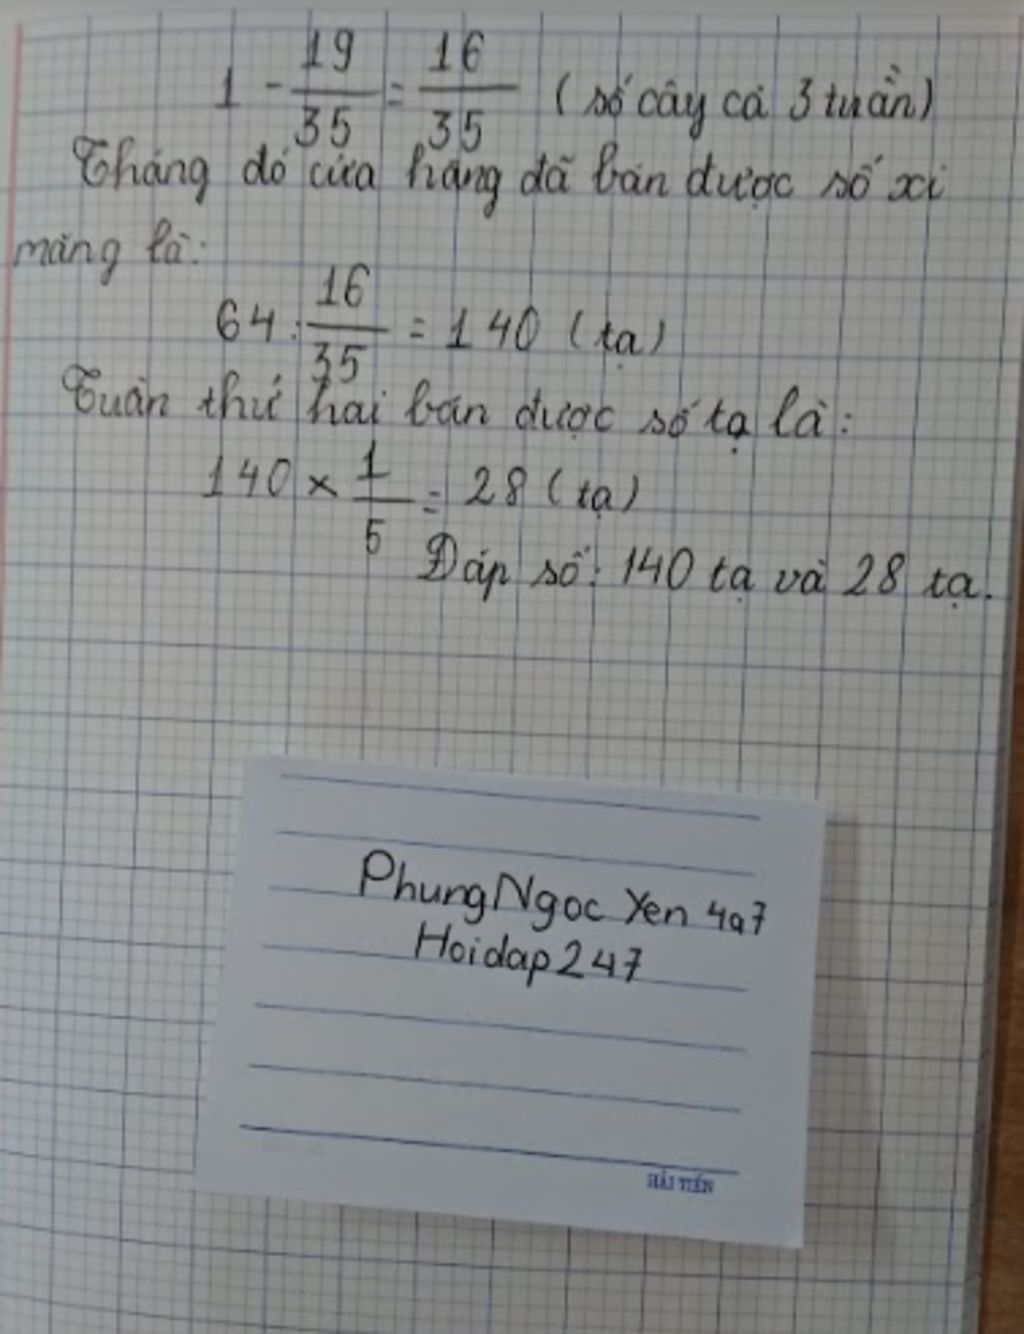 1 - 19/35 = 16/35 (số cây cả 3 tuần)
Tháng đó cửa hàng đã bán được số xi
măng là:
64 : 16/35 = 140 (tạ)
Tuần thứ hai bán được số tạ là:
140 × 1/5 = 28 (tạ)
Đáp số: 140 tạ và 28 tạ.
PhungNgoc Yen 4a7
Hoidap247
HẢI TIẾN